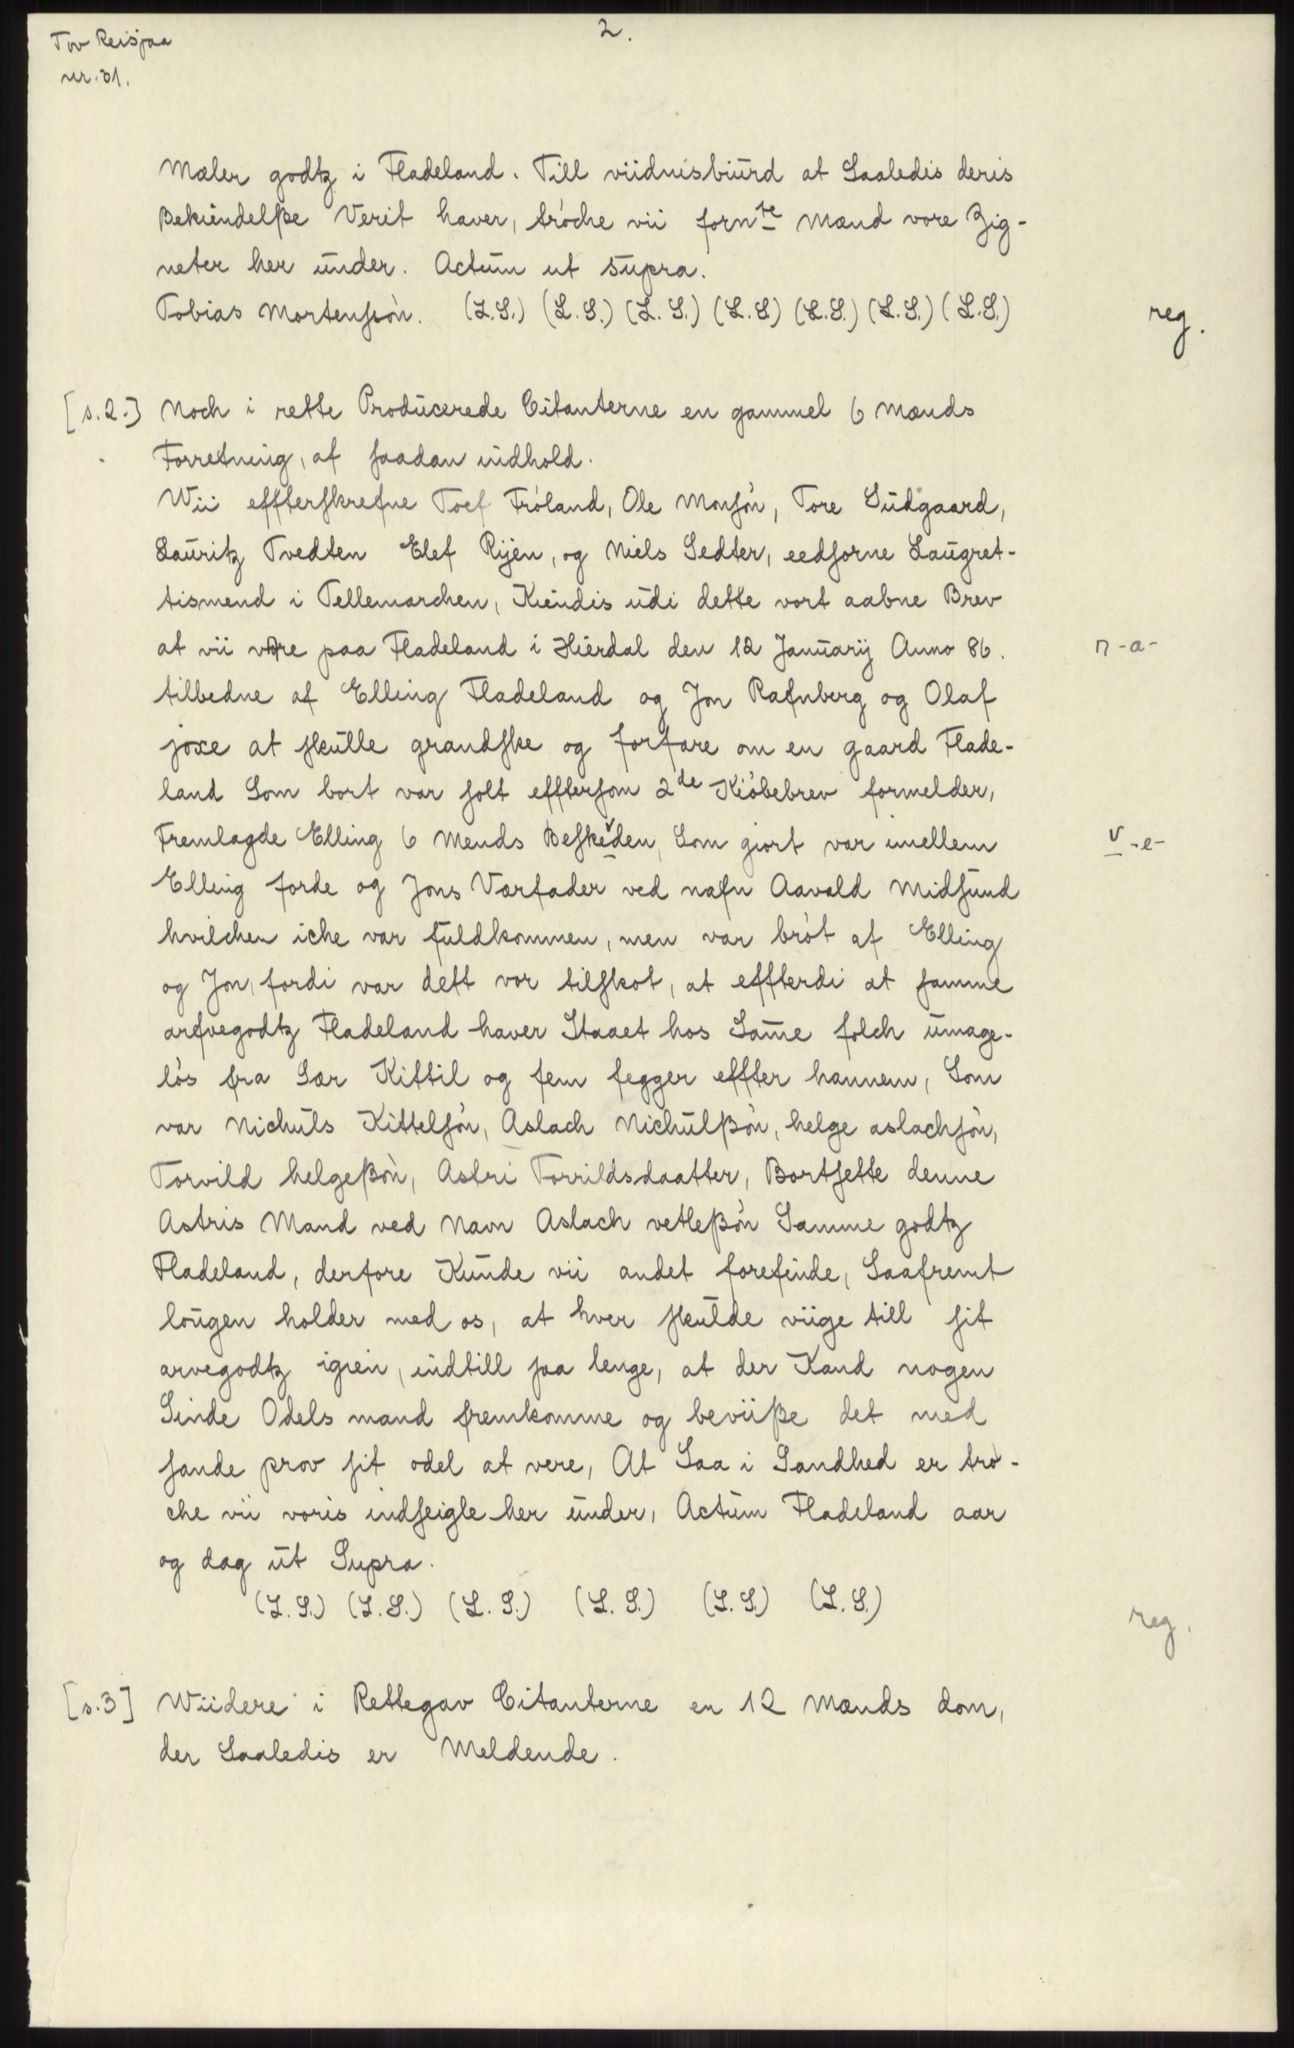 Tov Reisjaa
nr. 31.
2.
Mæler godtz i Fladeland. Till viidnisbiürd at Saaledis deris
Bekiendelße Verit haver, tröche vii forn<sup>te</sup> Mænd vore Zig-
neter her ünder. Actüm ut süpra.
Tobias Mortenssön. (L.S.) (L.S.) (L.S.) (L.S) (L.S.) (L.S.) (L.S.)
reg.
[s.2.] Noch i rette Prodücerede Citanterne en gammel 6 Mænds
Forretning, af saadan indhold.
Wii effterskrefne Toef Fröland, Ole Monsön, Tore Südgaard,
Laüritz Tvedten Elef Rijen, og Niels Sedter, eedsorne Laügret-
tismend i Tellemarchen, Kiendis üdi dette vort aabne Brev
at vii vare paa Fladeland i Hierdal den 12 Janüarij Anno 86.
n -a-
tilbedne af Elling Fladeland og Jon Rafnberg og Olaf
joxe at skülle grandske og forfare om en gaard Flade-
land Som bort var solt efftersom 2<sup>de</sup> Kiöbebrev formelder,
Fremlagde Elling 6 Mends Beskeden, Som giort var imellem
v -e-
Elling forde og Jons Værfader ved nafn Aavald Midsünd
hvilchen iche var füldkommen, men var bröt af Elling
og Jon, fordi var dett vor tilskot, at effterdi at samme
arfvegodtz Fladeland haver Staaet hos Same folch ümage-
lös fra Sær Kittil og fem fegger effter hannem, Som
var Nichüls Kittelsön, Aslach Nichülßön, helge aslachsön,
Torvild helgeßön, Astri Torvildsdaatter, Bortsette denne
Astris Mand ved Navn Aslach vetleßön Samme godtz
Fladeland, derfore Künde vii andet forefinde, Saafremt
loügen holder med os, at hver skülde viige till sit
arvegodtz igien, indtill saa lenge, at der Kand nogen
Sinde Odels mand fremkomme og beviiße det med
sande prov sit odel at vere, At Saa i Sandhed er trö-
che vii voris indseigle her ünder, Actüm Fladeland aar
og dag üt Supra.
(L.S.) (L.S.) (L.S.) (L.S.) (L.S.) (L.S.)
reg.
[s.3] Wiidere i Rettegav Citanterne en 12 Mænds dom,
der Saaledis er Meldende.